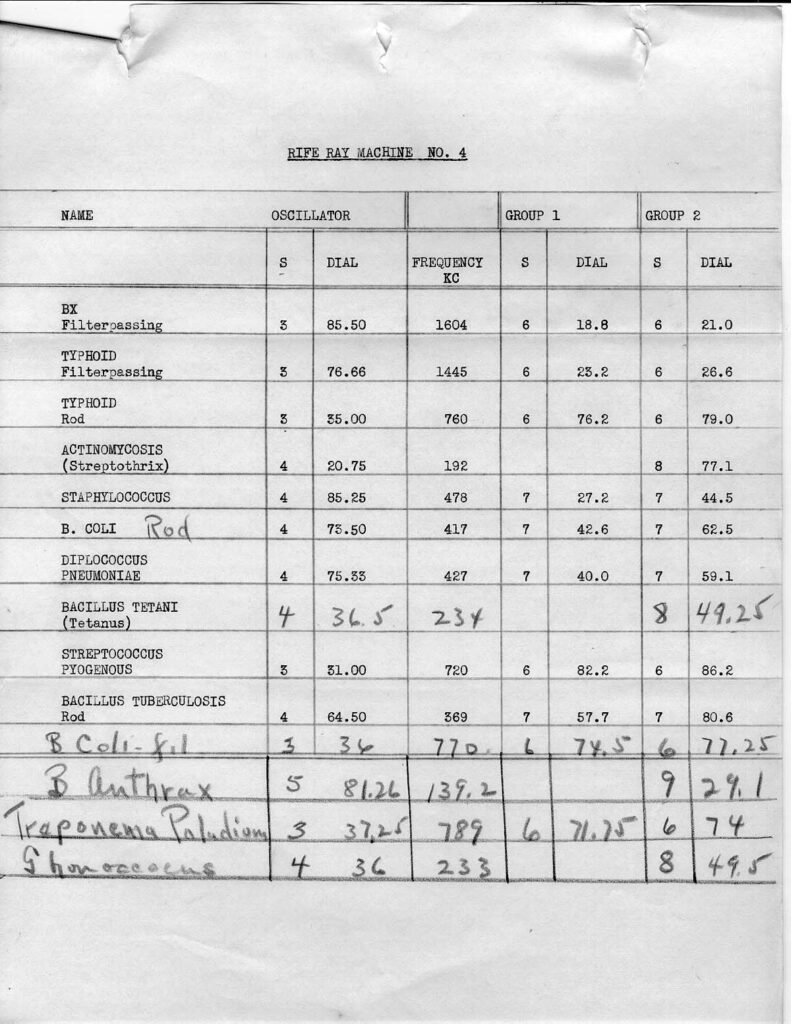 RIFE RAY MACHINE NO. 4
NAME OSCILLATOR GROUP 1 GROUP 2
S DIAL FREQUENCY S DIAL S DIAL
KC
BX
Filterpassing 3 85.50 1604 6 18.8 6 21.0
TYPHOID
Filterpassing 3 76.66 1445 6 23.2 6 26.6
TYPHOID
Rod 3 35.00 760 6 76.2 6 79.0
ACTINOMYCOSIS
(Streptothrix) 4 20.75 192 8 77.1
STAPHYLOCOCCUS 4 85.25 478 7 27.2 7 44.5
B. COLI Rod 4 73.50 417 7 42.6 7 62.5
DIPLOCOCCUS
PNEUMONIAE 4 75.33 427 7 40.0 7 59.1
BACILLUS TETANI
(Tetanus) 4 36.5 234 8 49.25
STREPTOCOCCUS
PYOGENOUS 3 31.00 720 6 82.2 6 86.2
BACILLUS TUBERCULOSIS
Rod 4 64.50 369 7 57.7 7 80.6
B Coli-fil 3 36 770. 6 74.5 6 77.25
B Anthrax 5 81.26 139.2 9 29.1
Treponema Paladium 3 37.25 789 6 71.75 6 74
Ghonoccocus 4 36 233 8 49.5